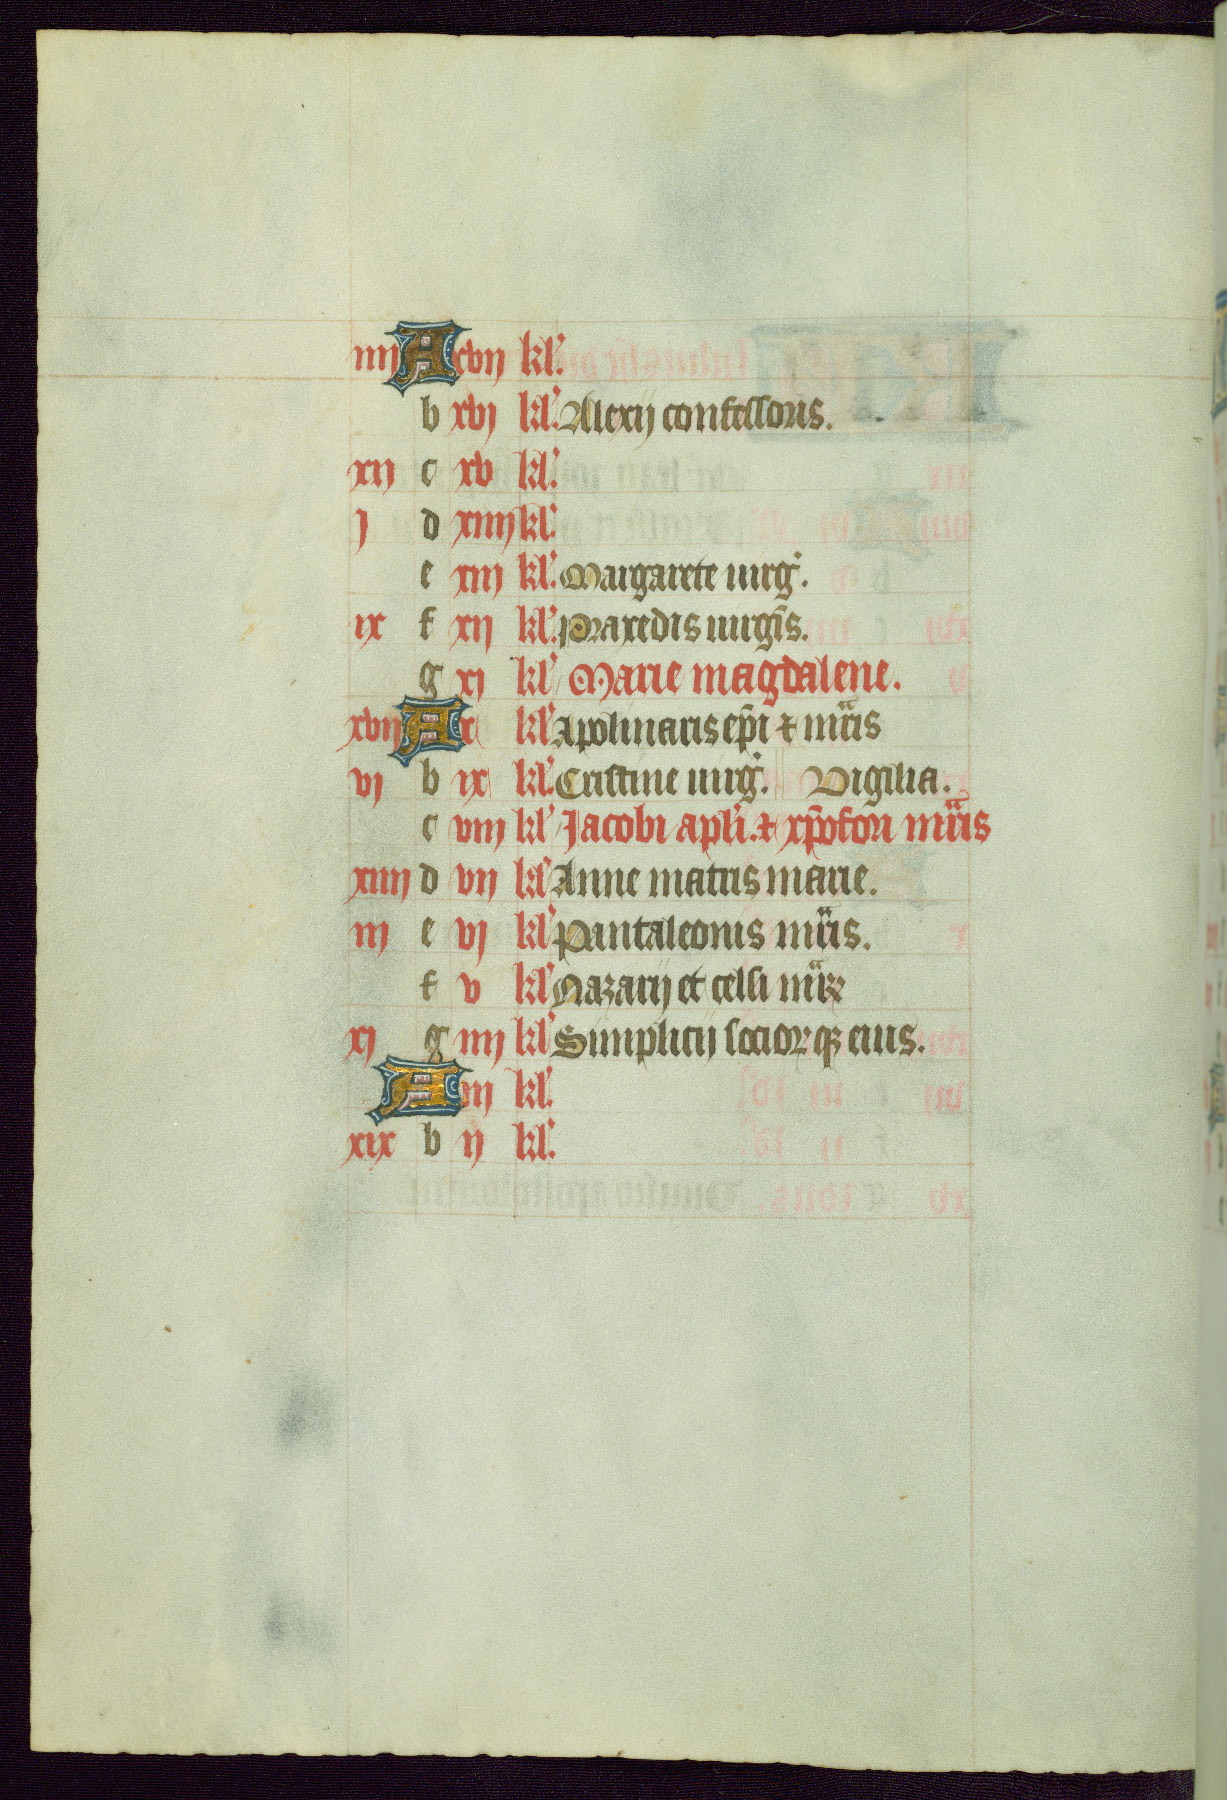 iiij A xvij kl'.
b xvj kl'. Alexij confessoris.
xij c xv kl'.
j d xiiij kl'.
e xiij kl'. Margarete uirg'.
ix f xij kl'. Praxedis uirgis.
g xj kl' Marie magdalene.
xvij A x kl' Apolinaris epi et mris
vj b ix kl'. Cristine uirg'. Vigilia.
c viij kl' Jacobi apli. et xpofori mris
xiiij d vij kl' Anne matris marie.
iij e vj kl' Pantaleonis mris.
f v kl' Nazarij et celsi mrꝝ
xj g iiij kl' Simplicij sociorqꝫ eius.
A iij kl'.
xix b ij kl'.